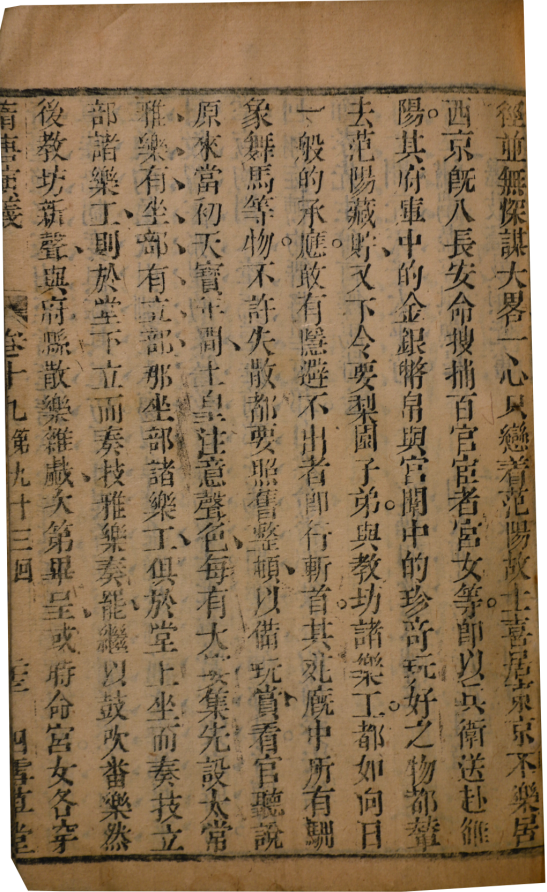 徑並無深謀大畧一心只戀着范陽故土喜居東京不樂居
西京旣入長安命搜捕百官宦者宮女等卽以兵衛送赴雒
陽其府庫中的金銀幣帛與宮闈中的珍奇玩好之物都輦
去范陽藏貯又下令要梨園子弟與教坊諸樂工都如向日
一般的承應敢有隱避不出者卽行斬首其苑廐中所有馴
象舞馬等物不許失散都要照舊整頓以備玩賞看官聽說
原來當初天寶年間上皇注意聲色每有大宴集先設太常
雅樂有坐部有立部那坐部諸樂工俱於堂上坐而奏技立
部諸樂工則於堂下立而奏技雅樂奏罷繼以鼓吹番樂然
後教坊新聲與府縣散樂雜戲次第畢呈或時命宮女各穿
隋唐演義 卷十九第九十三回 四雪草堂